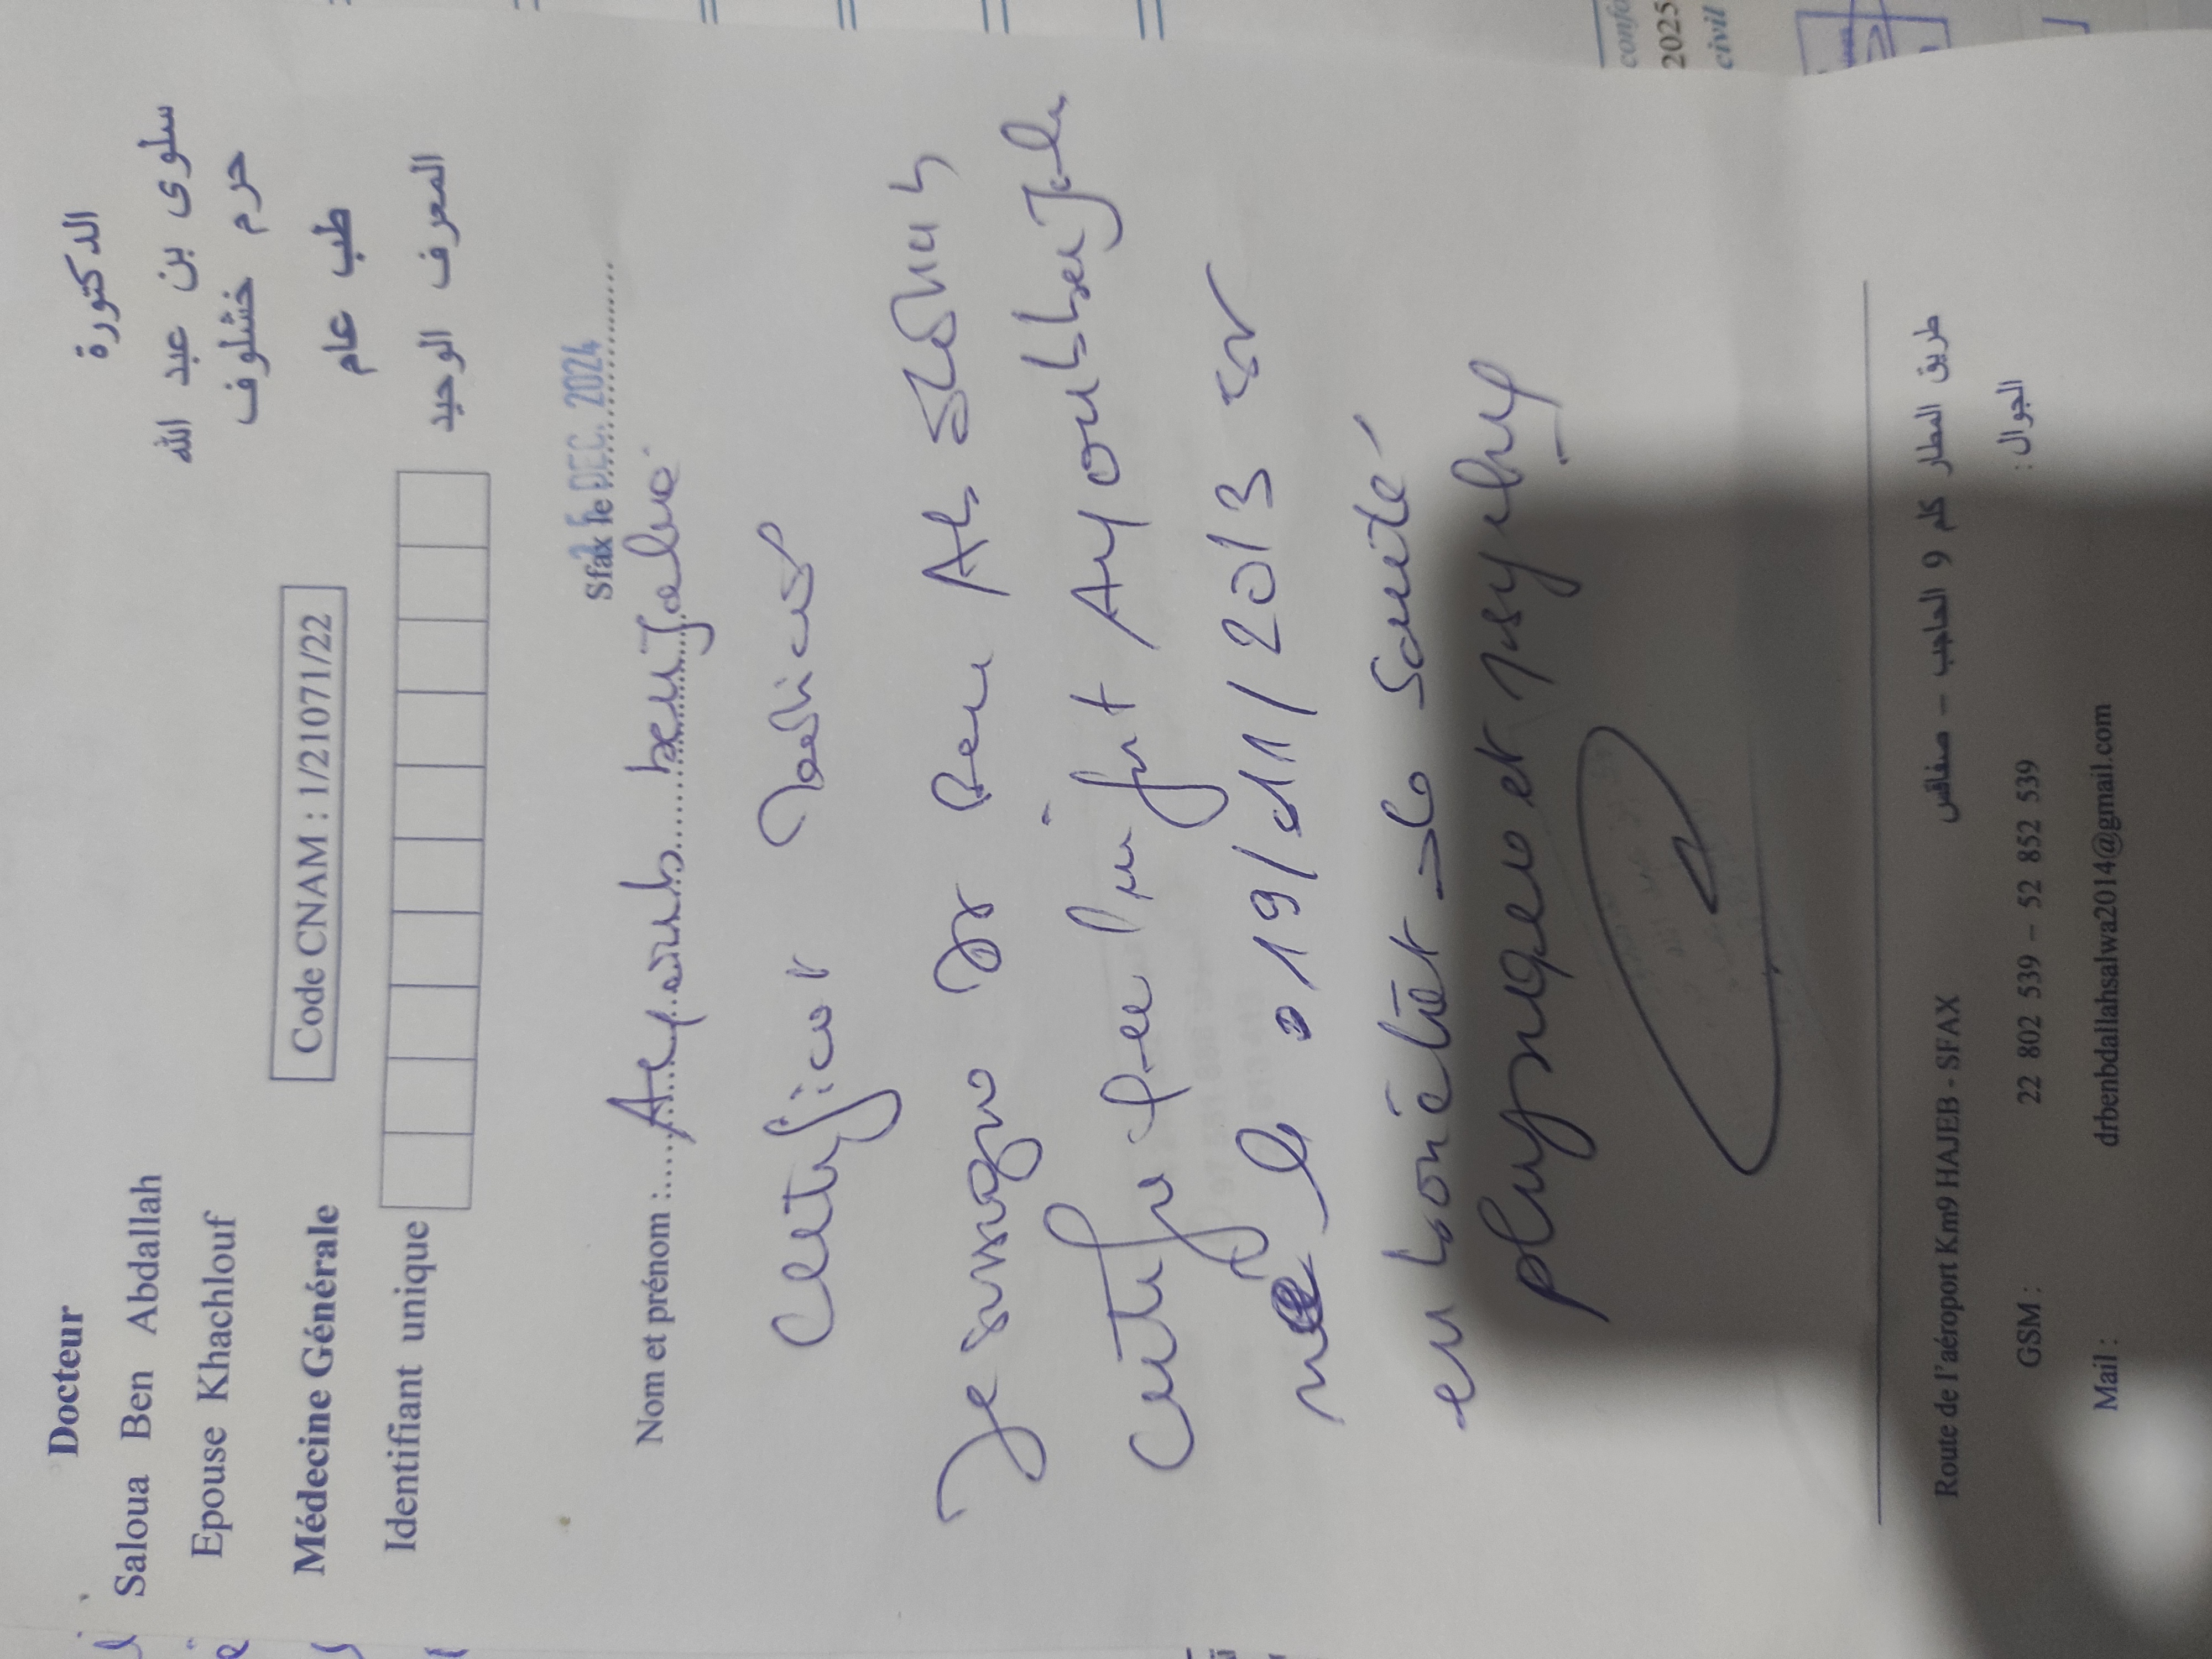 Docteur
Saloua Ben Abdallah
Epouse Khachlouf
Médecine Générale
الدكتورة
سلوى بن عبد الله
حرم خشلوف
طب عام
Code CNAM : 1/21071/22
Identifiant unique
المعرف الوحيد
Sfax le DEC. 2024
Nom et prénom : Ayoub ben
Certificat médical
Je soussigné Dr Ben
Certifie que l'enfant Ayoub ben
né le 19/11/2013 est
en bon état de santé
physique et psychique
Route de l'aéroport Km9 HAJEB - SFAX
طريق المطار كلم 9 الحاجب – صفاقس
GSM : 22 802 539 – 52 852 539 الجوال :
Mail : drbenbdallahsalwa2014@gmail.com
confo
2025
civil